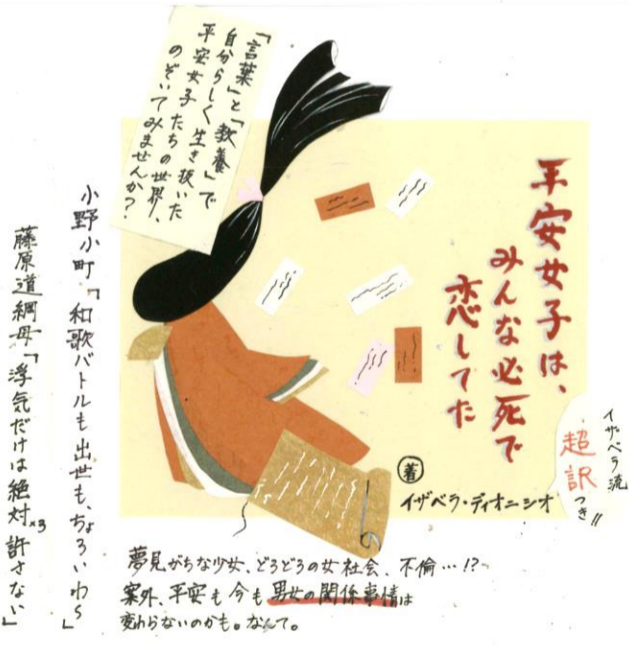 「言葉」と「教養」で
自分らしく生き抜いた
平安女子たちの世界、
のぞいてみませんか？
平安女子は、
みんな必死で
恋してた
イザベラ流
超訳
つき!!
著
イザベラ・ディオニシオ
小野小町「和歌バトルも出世も、ちょろいわ〜」
藤原道綱母「浮気だけは絶対×3許さない」
夢見がちな少女、どろどろの女社会、不倫…!?
案外、平安も今も男女の関係事情は
変わらないのかも。なんて。